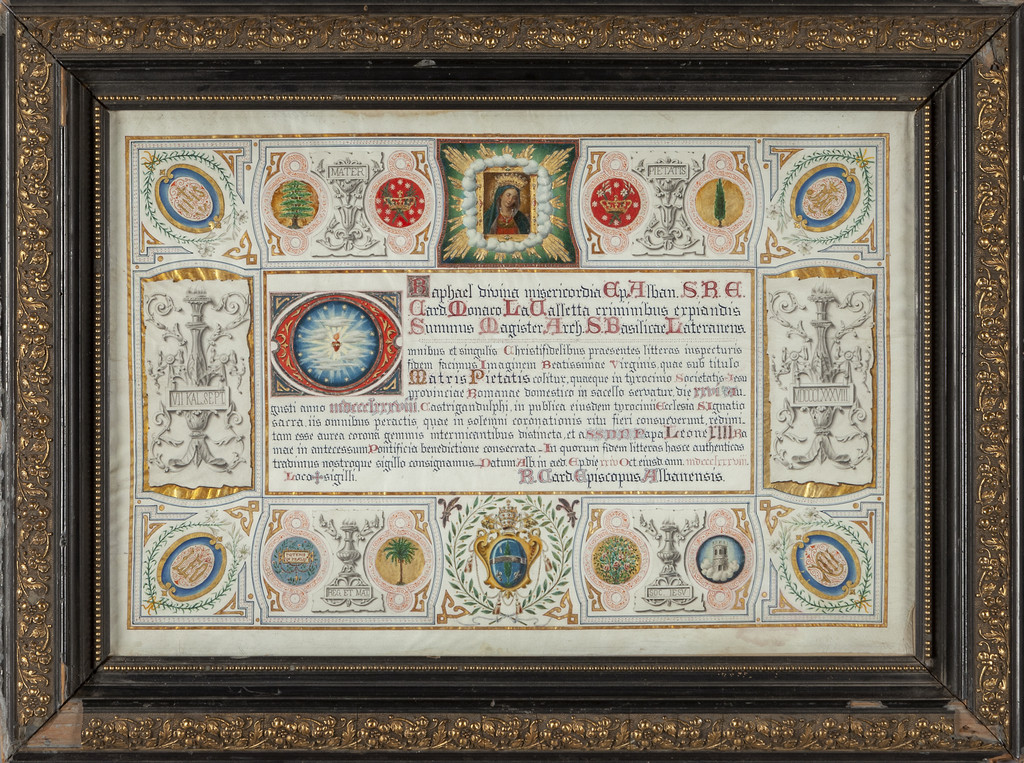 MATER
PIETATIS
Raphael divina misericordia Ep. Alban. S. R. E.
Card. Monaco La Valletta criminibus expiandis
Summus Magister Arch. S. Basilicae Lateranens
omnibus et singulis Christifidelibus praesentes litteras inspecturis
fidem facimus Imaginem Beatissimae Virginis, quae sub titulo
Matris Pietatis colitur, quaeque in tyrocinio Societatis Jesu
provinciae Romanae domestico in sacello servatur, die XXVI Au
gusti anno mdccclxxxviii, Castrigandulphi, in publica eiusdem tyrocinii Ecclesia S. Ignatio
sacra, iis omnibus peractis, quae in solemni coronationis ritu fieri consueverunt, redimi,
tam esse aurea corona gemmis intermicantibus distincta, et a SSDN Papa Leone XIII Ro
mae in antecessum Pontificia benedictione consecrata. In quorum fidem litteras hasce authenticas
tradimus nostroque sigillo consignamus. Datum Alb. in aed. Ep. die Oct. eiusd. ann. mdccclxxxviii.
Loco + sigilli.
R. Card. Episcopus Albanensis.
VII KAL. SEPT
MDCCCLXXXVIII
REG. ET MAT.
SOC. IESU